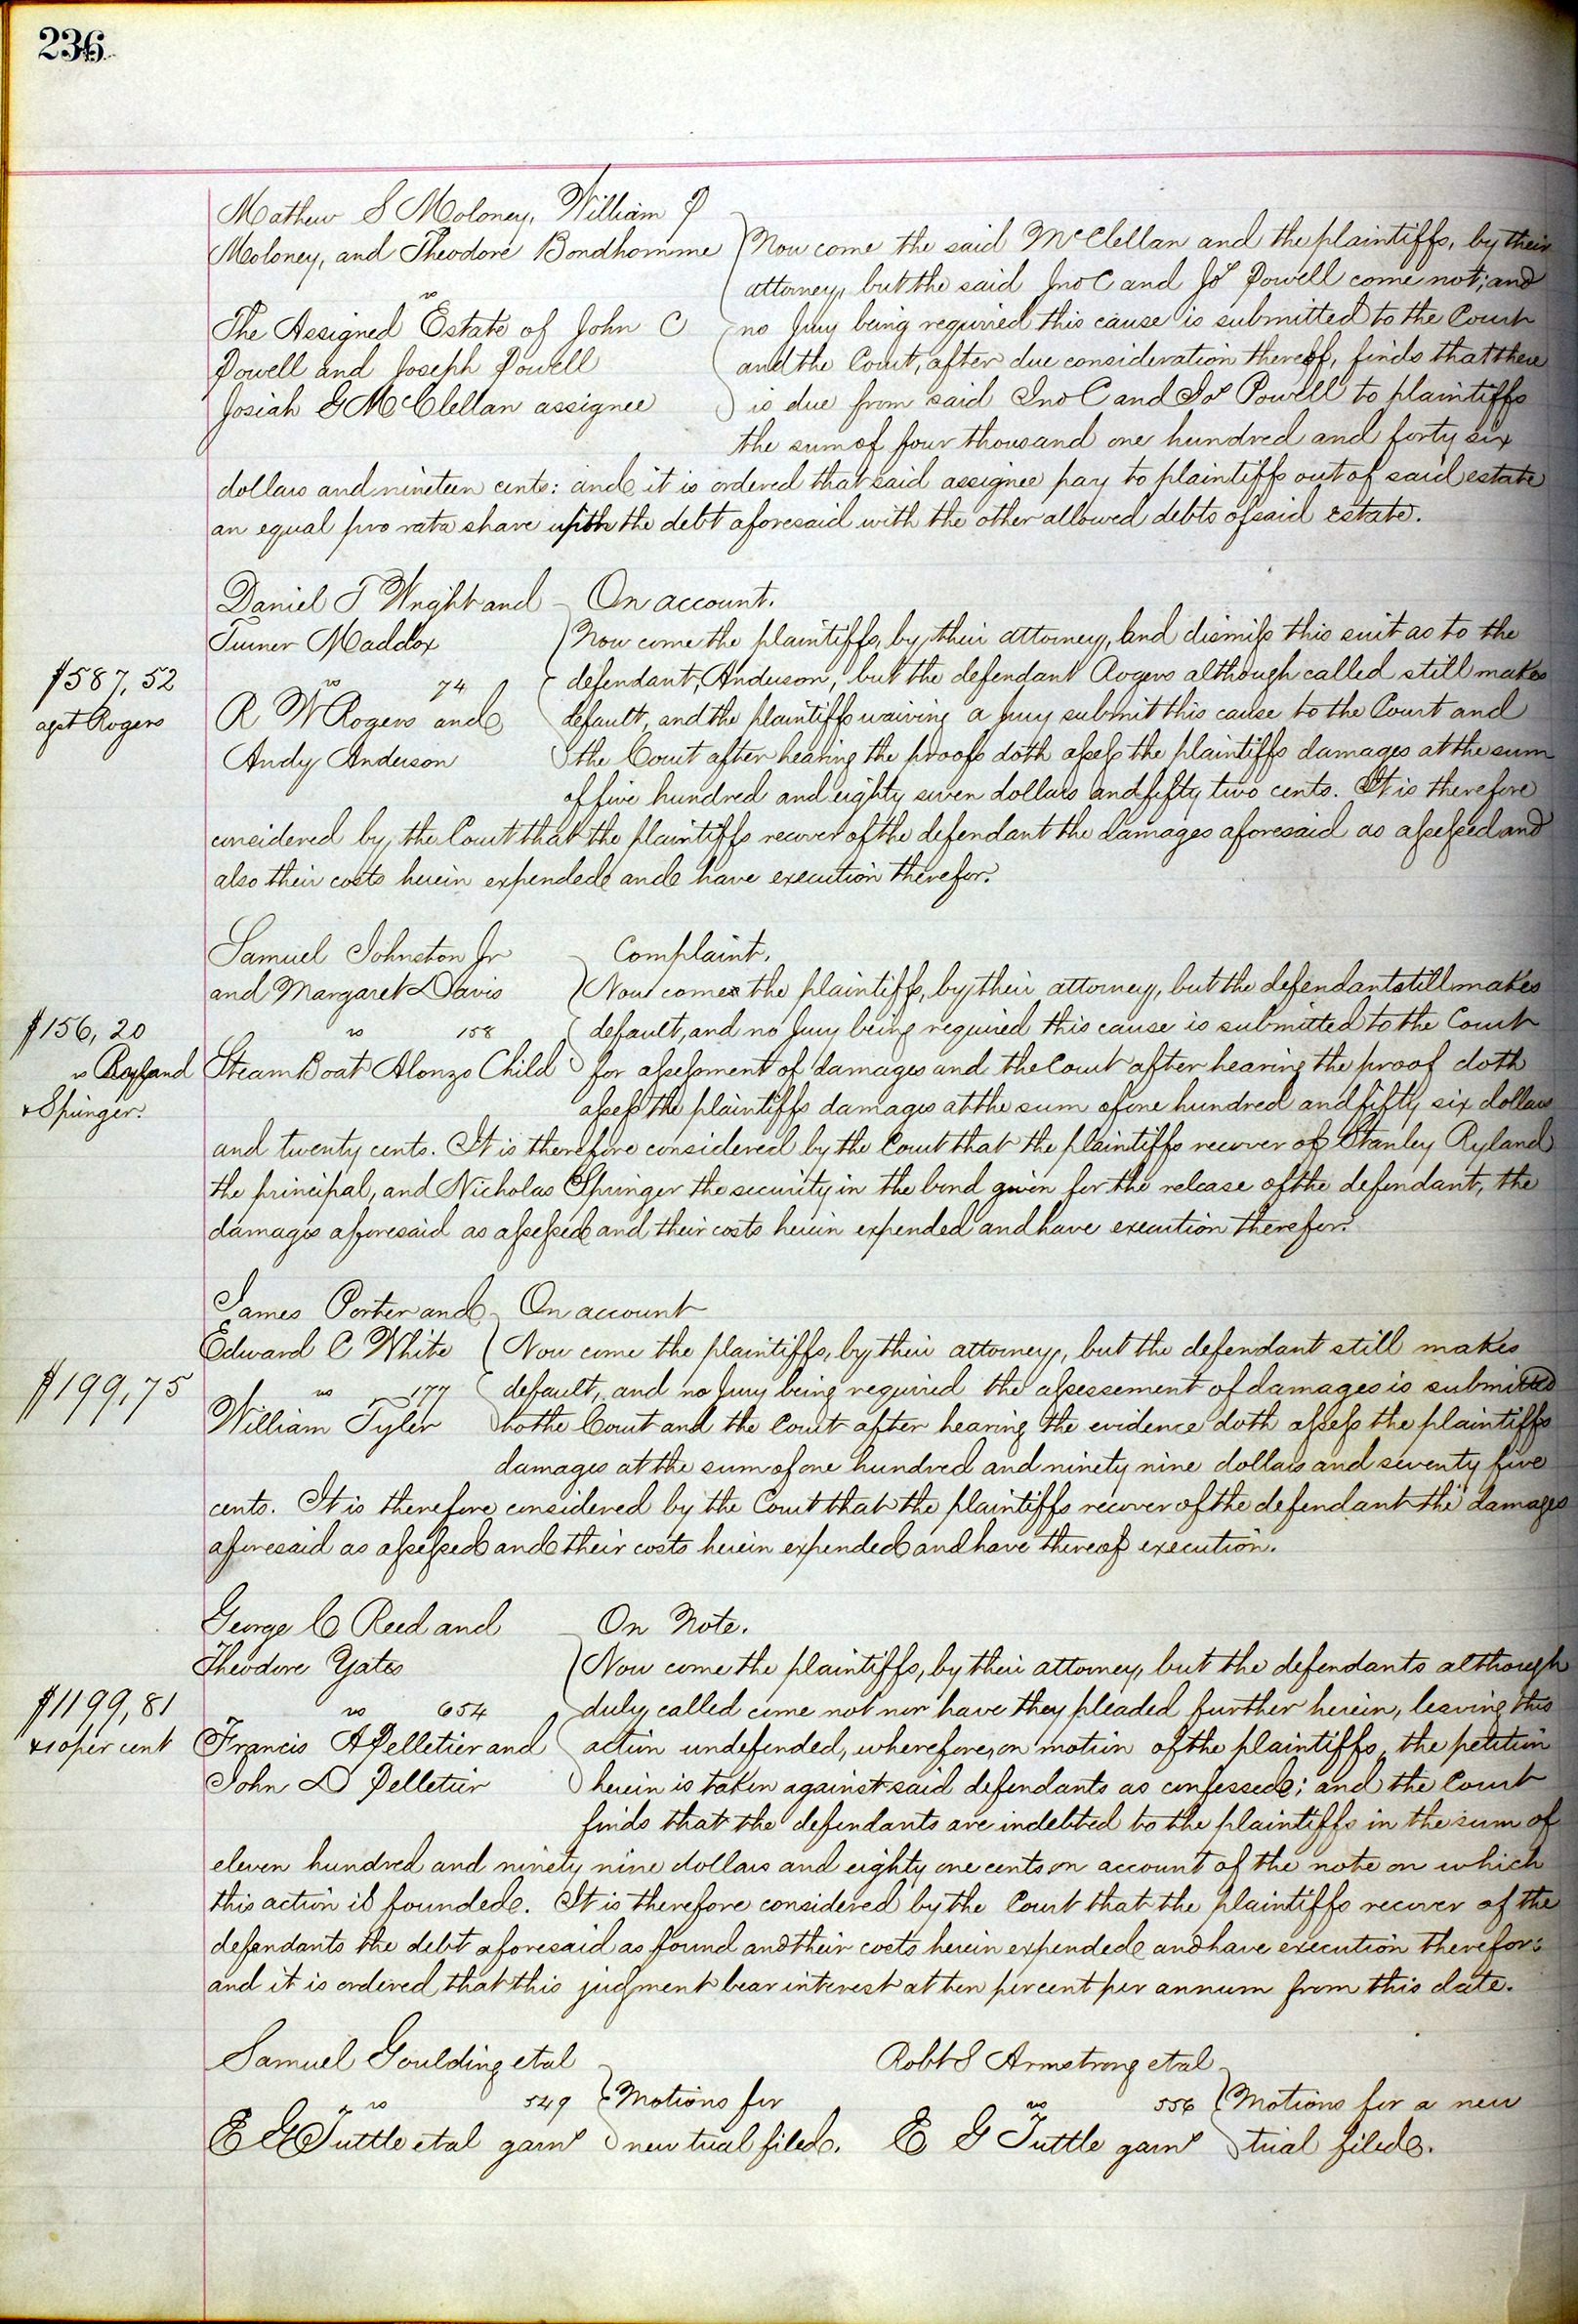 236
Mathew S Moloney, William P
Moloney, and Theodore Bondhomme
vs
The Assigned Estate of John C
Powell and Joseph Powell
Josiah G McClellan assignee
Now come the said McClellan and the plaintiffs, by their
attorney, but the said Jno C and Jos Powell come not; and
no Jury being required this cause is submitted to the Court
and the Court, after due consideration thereof, finds that there
is due from said Jno C and Jos Powell to plaintiffs
the sum of four thousand one hundred and forty six
dollars and nineteen cents: and it is ordered that said assignee pay to plaintiffs out of said estate
an equal pro rata share upon the debt aforesaid with the other allowed debts of said Estate.
$587,52
agst Rogers
Daniel T Wright and
Turner Maddox
vs 74
R W Rogers and
Andy Anderson
On account.
Now come the plaintiffs, by their attorney, and dismiss this suit as to the
defendant, Anderson, but the defendant Rogers although called still makes
default, and the plaintiffs waiving a Jury submit this cause to the Court and
the Court after hearing the proofs doth assess the plaintiffs damages at the sum
of five hundred and eighty seven dollars and fifty two cents. It is therefore
considered by the Court that the plaintiffs recover of the defendant the damages aforesaid as assessed and
also their costs herein expended and have execution therefor.
$156,20
vs Ryland
& Springer.
Samuel Johnston Jr
and Margaret Davis
vs 158
Steam Boat Alonzo Child
Complaint.
Now come the plaintiffs, by their attorney, but the defendant still makes
default, and no Jury being required this cause is submitted to the Court
for assessment of damages and the Court after hearing the proof doth
assess the plaintiffs damages at the sum of one hundred and fifty six dollars
and twenty cents. It is therefore considered by the Court that the plaintiffs recover of Stanley Ryland
the principal, and Nicholas Springer the security in the bond given for the release of the defendant, the
damages aforesaid as assessed and their costs herein expended and have execution therefor.
$199,75
James Porter and
Edward C White
vs 177
William Tyler
On account
Now come the plaintiffs, by their attorney, but the defendant still makes
default, and no Jury being required the assessement of damages is submitted
to the Court and the Court after hearing the evidence doth assess the plaintiffs
damages at the sum of one hundred and ninety nine dollars and seventy five
cents. It is therefore considered by the Court that the plaintiffs recover of the defendant the damages
aforesaid as assessed and their costs herein expended and have thereof execution.
$1199,81
& 10 per cent
George C Reed and
Theodore Yates
vs 654
Francis A Pelletier and
John D Pelletier
On Note.
Now come the plaintiffs, by their attorney, but the defendants although
duly called come not nor have they pleaded further herein, leaving this
action undefended, wherefore, on motion of the plaintiffs, the petition
herein is taken against said defendants as confessed; and the Court
finds that the defendants are indebted to the plaintiffs in the sum of
eleven hundred and ninety nine dollars and eighty one cents on account of the note on which
this action is founded. It is therefore considered by the Court that the plaintiffs recover of the
defendants the debt aforesaid as found and their costs herein expended and have execution therefor:
and it is ordered that this judgment bear interest at ten per cent per annum from this date.
Samuel Goulding et al
vs 549
E G Tuttle et al garns
Motions for
new trial filed.
Robt S Armstrong et al
vs 556
E G Tuttle garns
Motions for a new
trial filed.